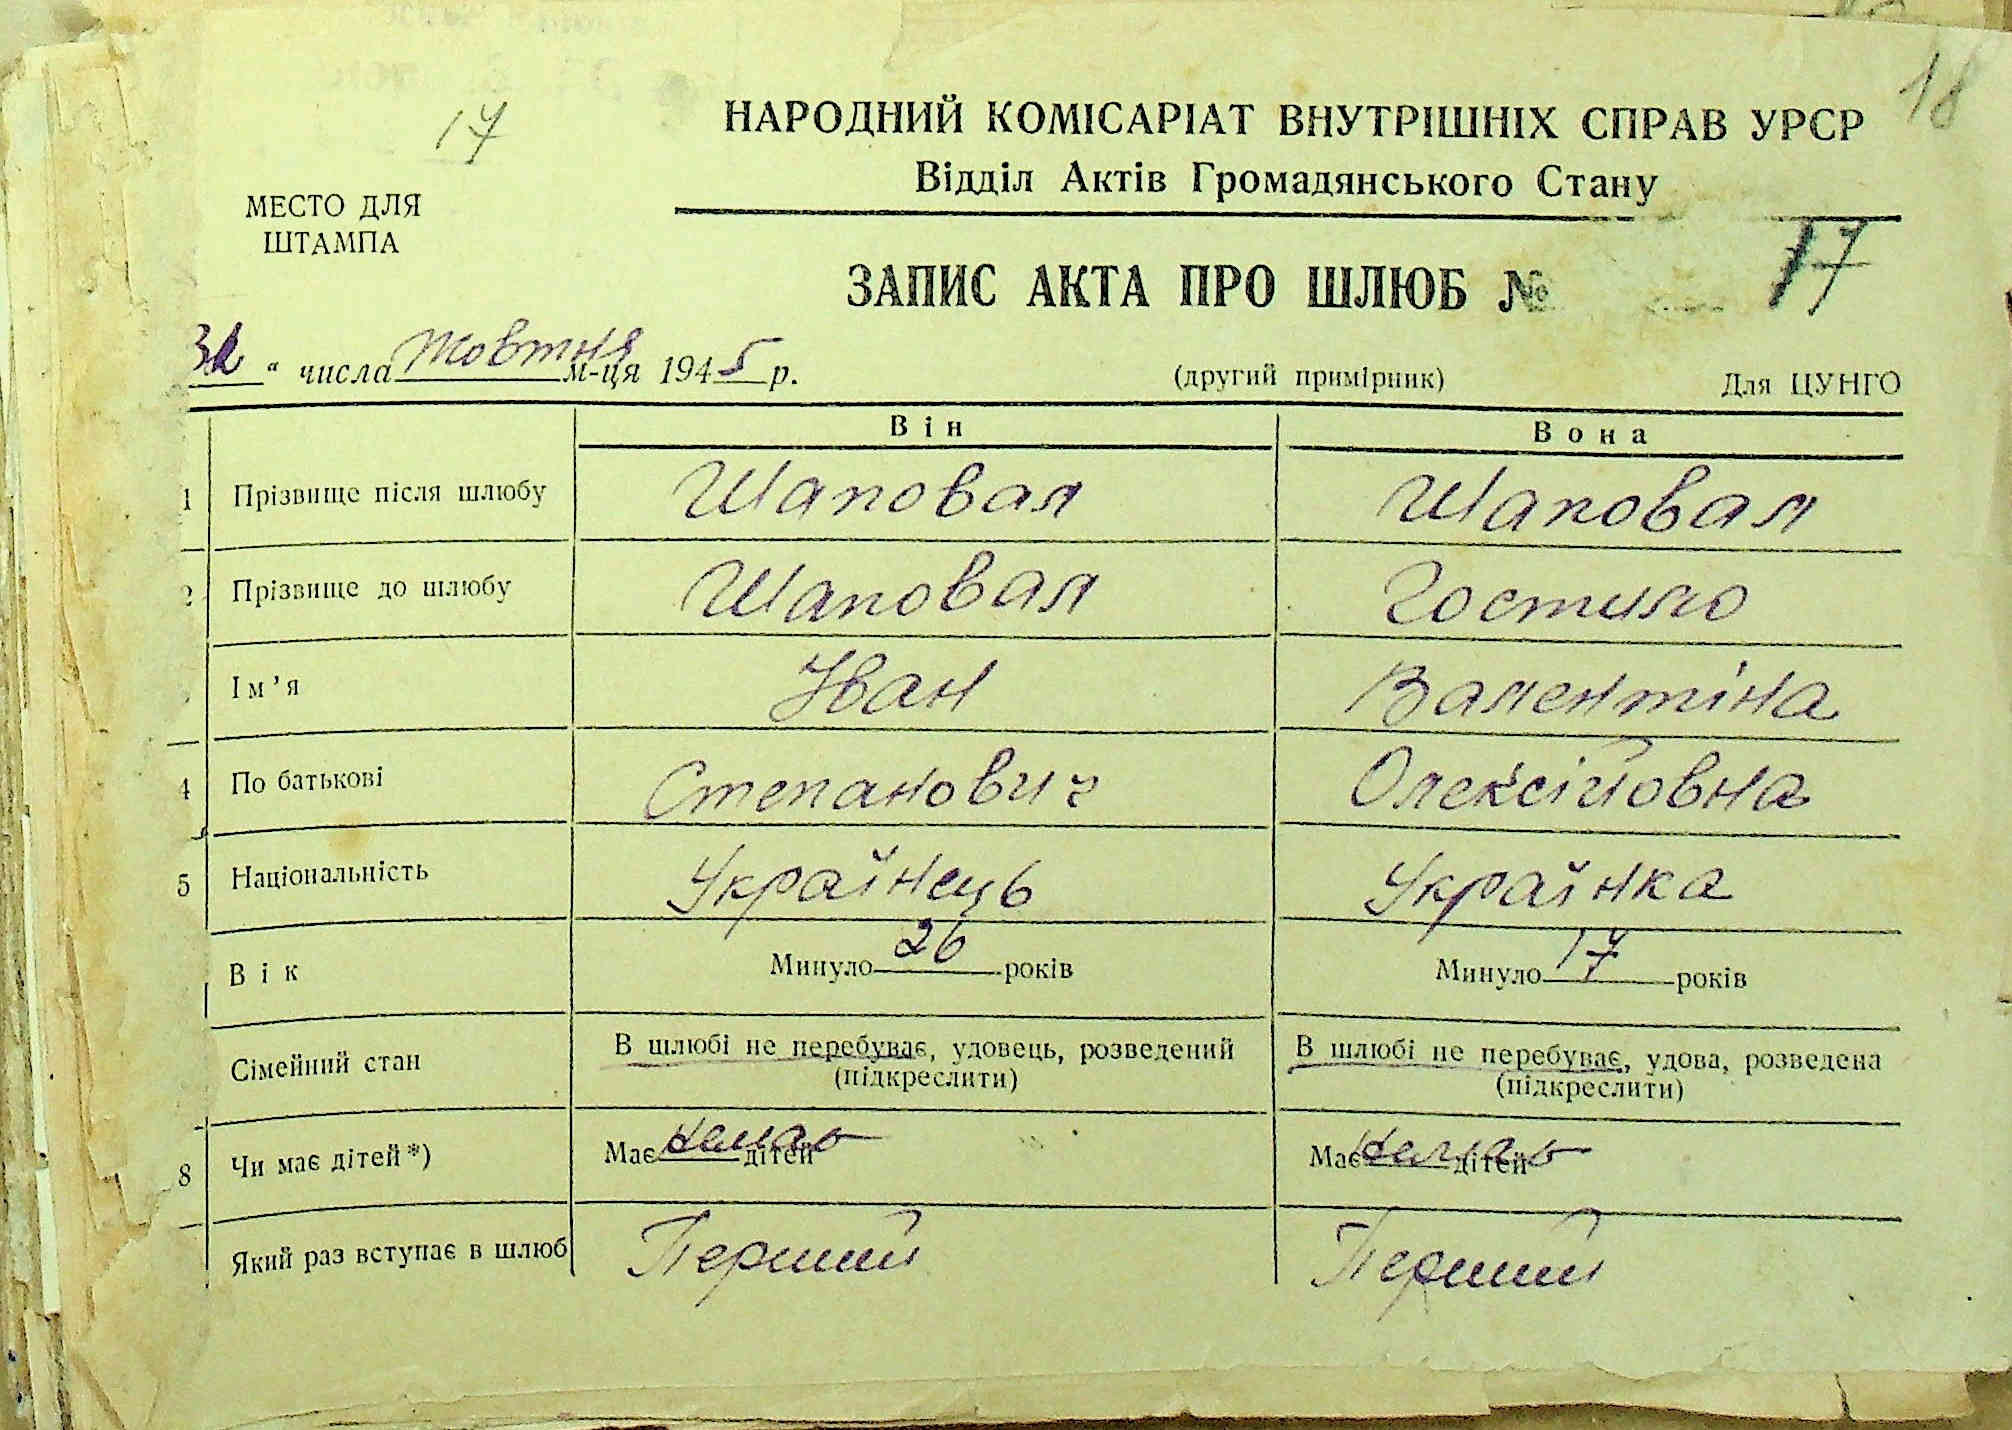 18
17
НАРОДНИЙ КОМІСАРІАТ ВНУТРІШНІХ СПРАВ УРСР
Відділ Актів Громадянського Стану
МЕСТО ДЛЯ
ШТАМПА
ЗАПИС АКТА ПРО ШЛЮБ № 17
“ числа Жовтня м-ця 1945 р. (другий примірник) Для ЦУНГО
Він Вона
1 Прізвище після шлюбу Шаповал Шаповал
2 Прізвище до шлюбу Шаповал Гостило
Ім’я Іван Валентіна
4 По батькові Степанович Олексійовна
5 Національність Українець Українка
Вік Минуло 26 років Минуло 17 років
Сімейний стан В шлюбі не перебуває, удовець, розведений В шлюбі не перебуває, удова, розведена
(підкреслити) (підкреслити)
8 Чи має дітей*) Має немає дітей Має немає дітей
Який раз вступає в шлюб Перший Перший